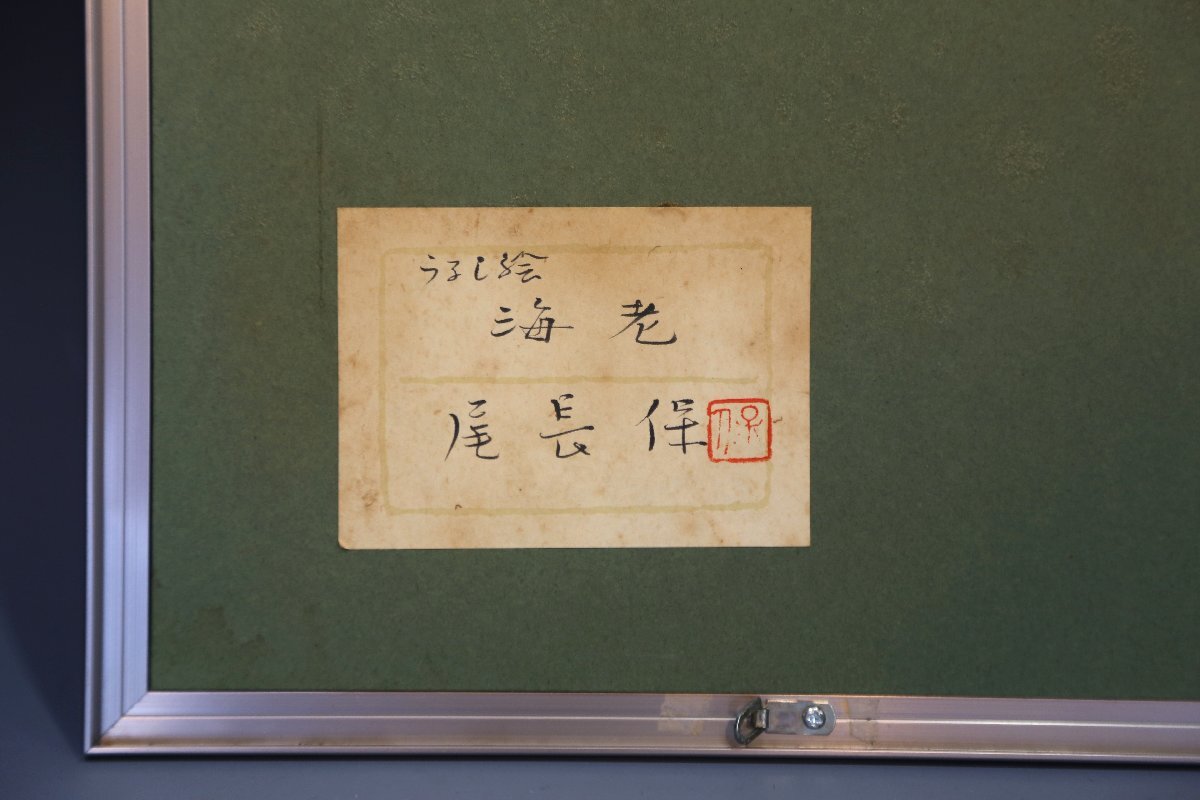 うるし絵
海老
尾長保 保